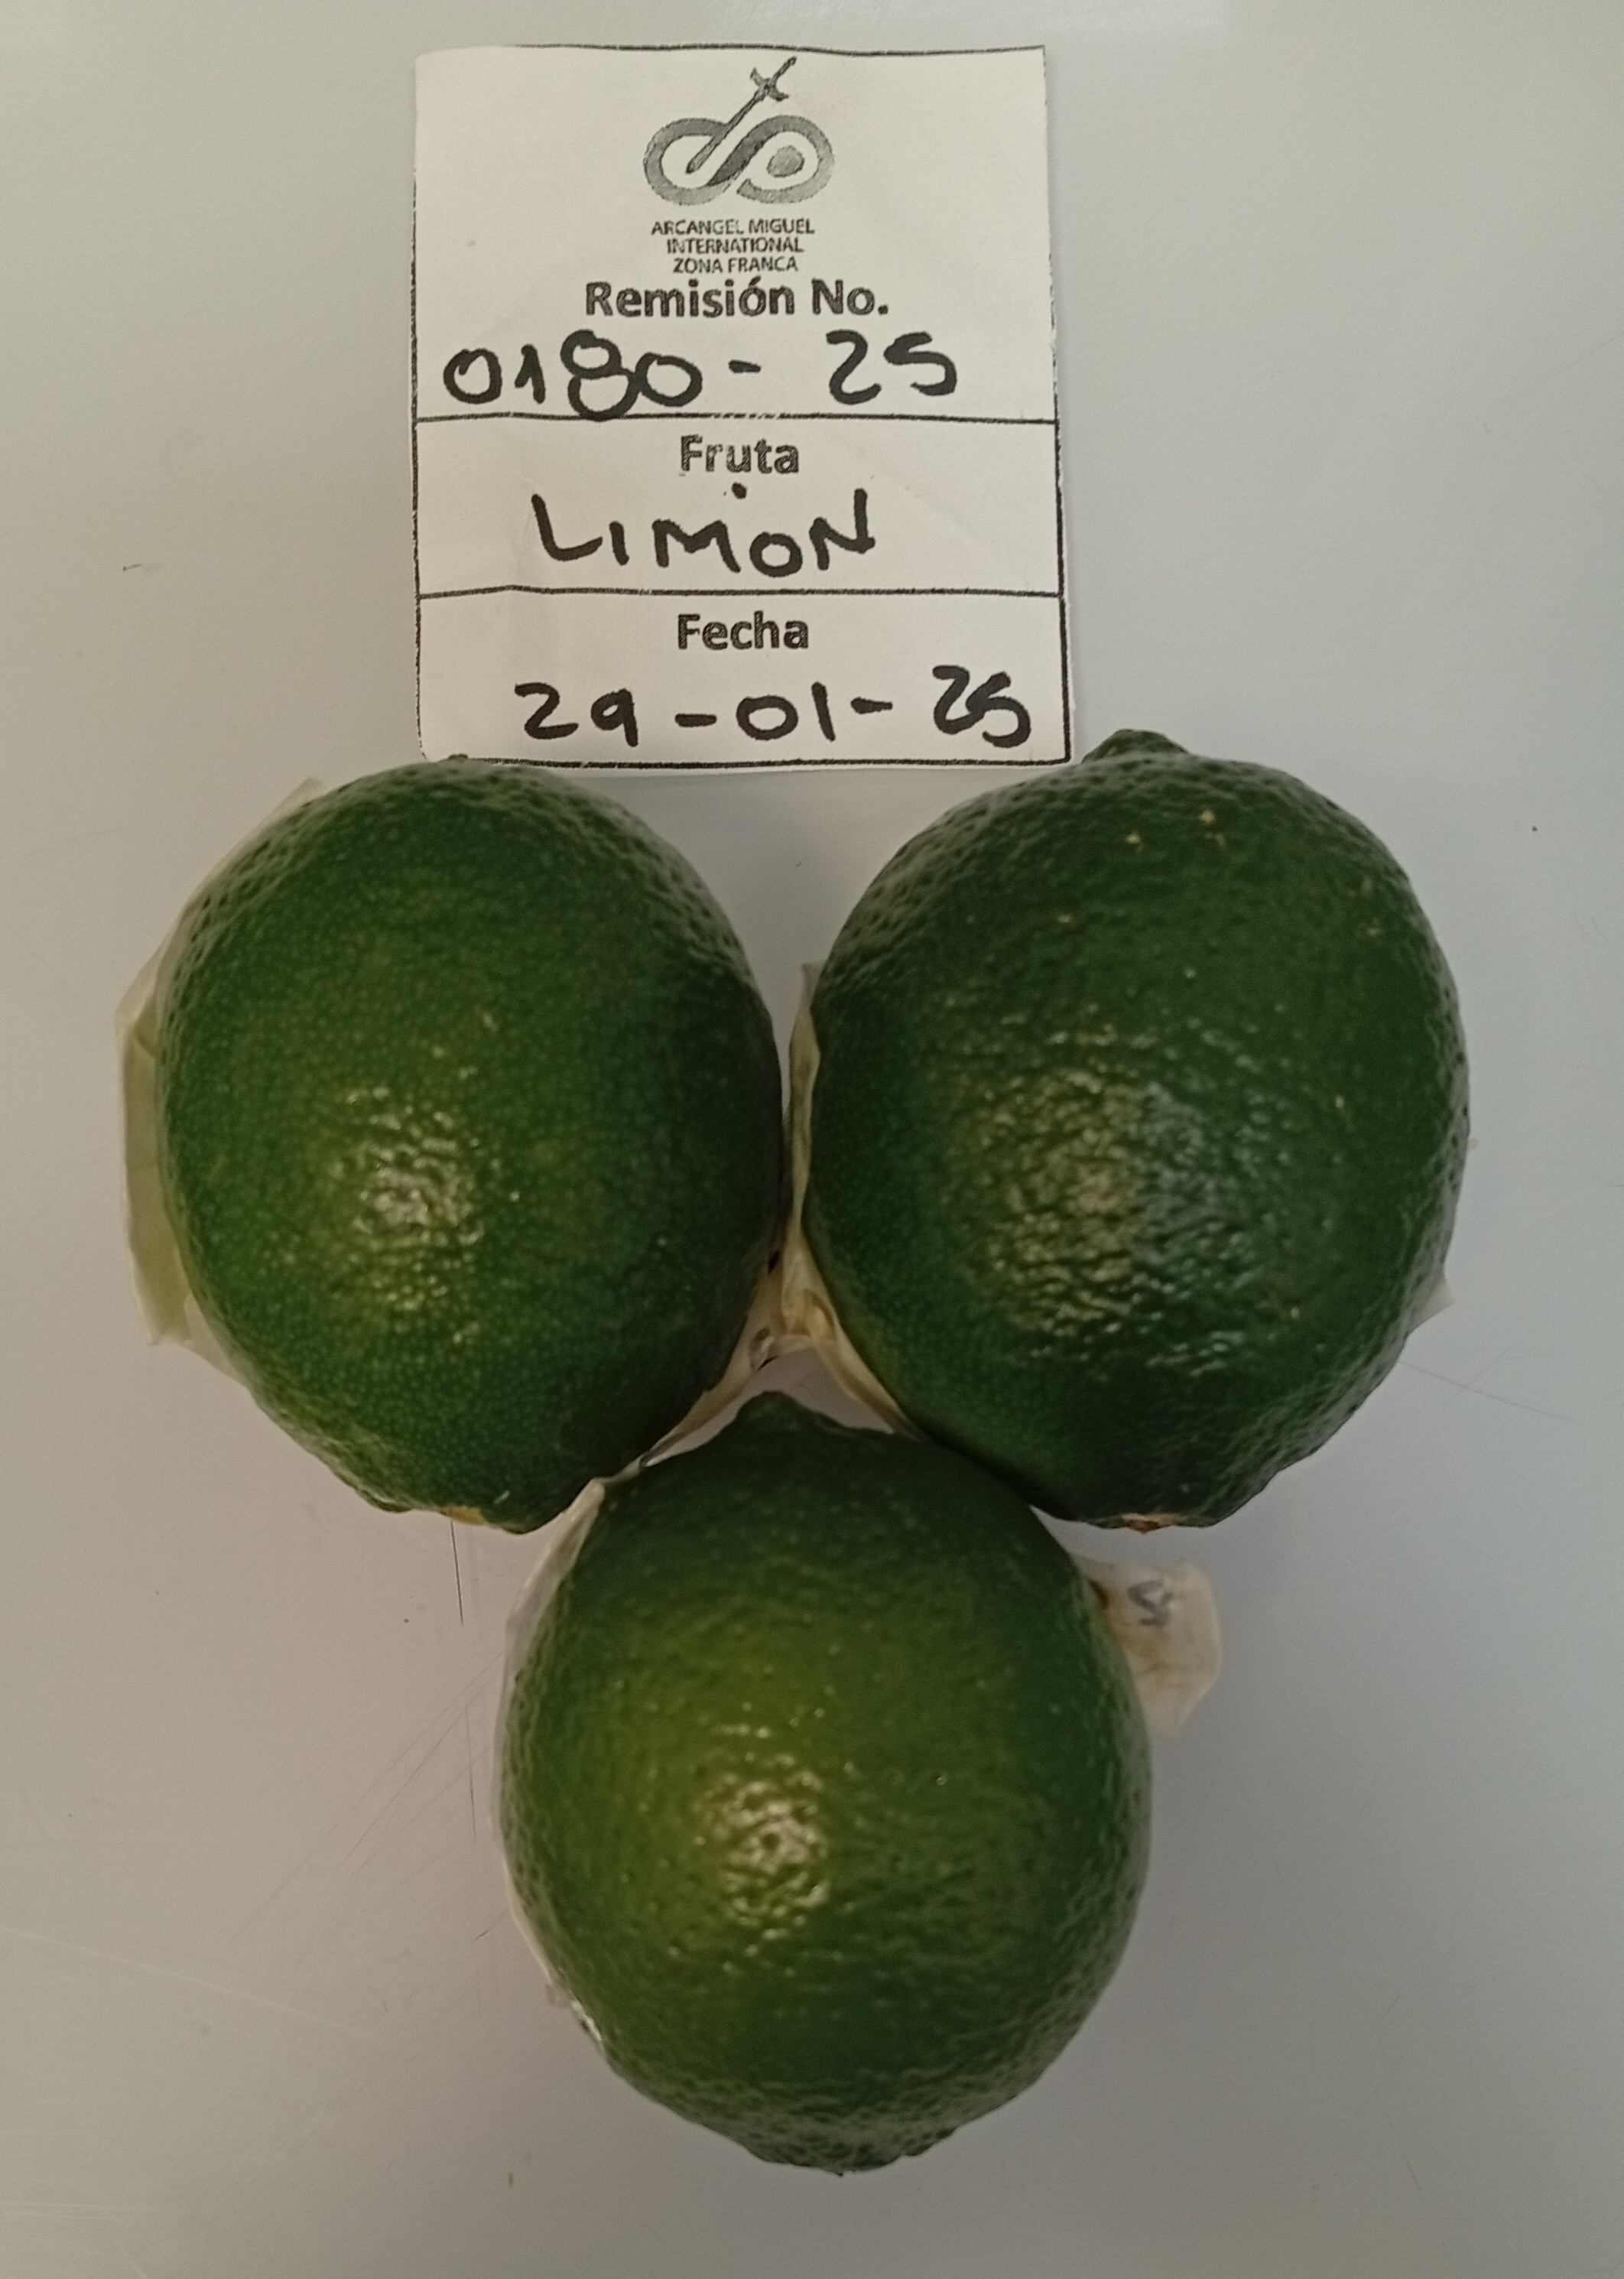 ARCANGEL MIGUEL
INTERNATIONAL
ZONA FRANCA
Remisión No.
0180 - 25
Fruta
LIMON
Fecha
29-01-25